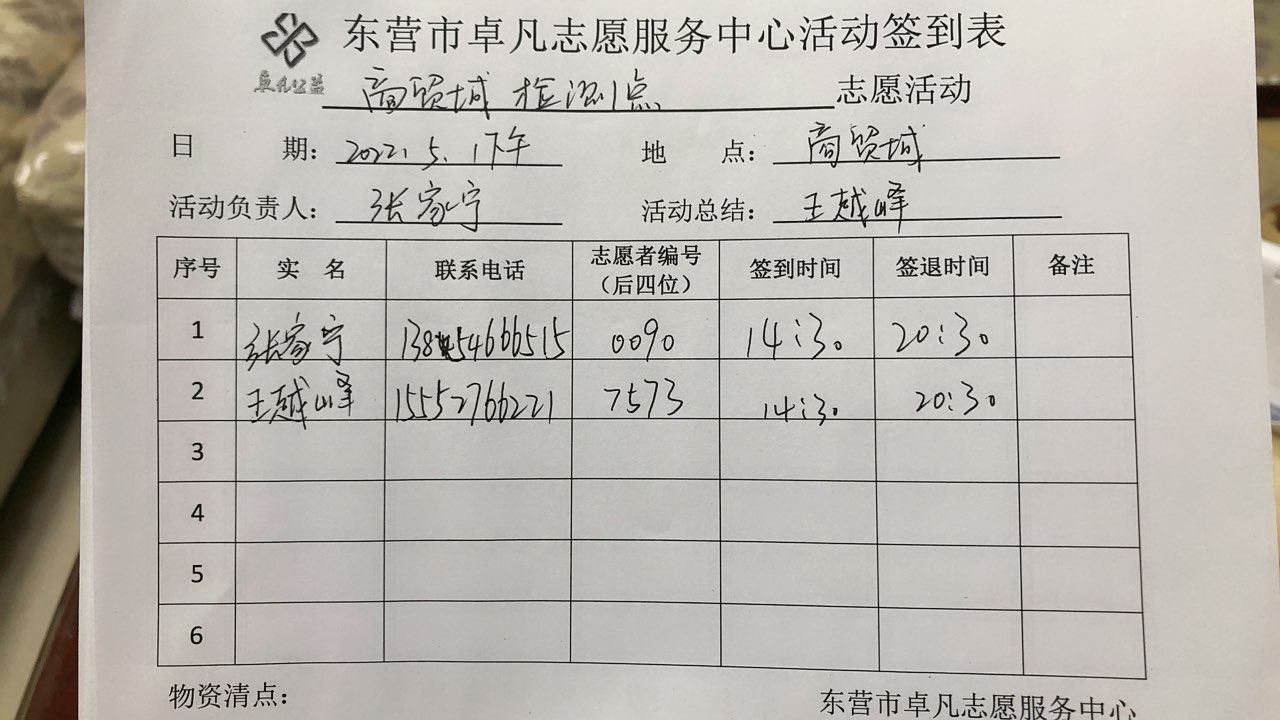 东营市卓凡志愿服务中心活动签到表
卓凡公益
商贸城 检测点 志愿活动
日 期： 2022.5.1下午 地 点： 商贸城
活动负责人： 张家宁 活动总结： 王越峰
序号 实 名 联系电话 志愿者编号（后四位） 签到时间 签退时间 备注
1 张家宁 13854666515 0090 14:30 20:30
2 王越峰 15552766221 7573 14:30 20:30
3
4
5
6
物资清点： 东营市卓凡志愿服务中心